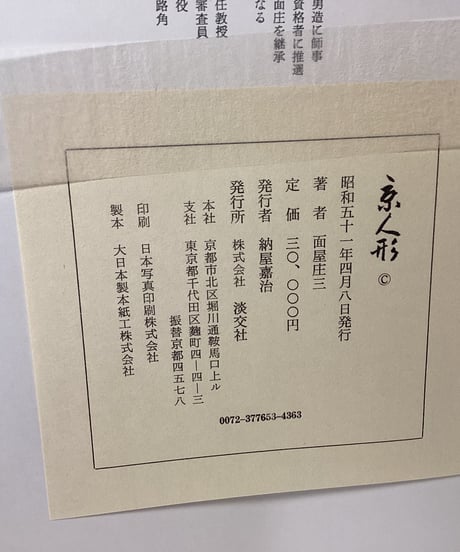 勇造に師事
資格者に推選
面庄を継承
なる
任教授
審査員
役
路角
京人形 ©
昭和五十一年四月八日発行
著者 面屋庄三
定価 三〇、〇〇〇円
発行者 納屋嘉治
発行所 株式会社 淡交社
本社 京都市北区堀川通鞍馬口上ル
支社 東京都千代田区麹町四—四—三
振替京都四五七八
印刷 日本写真印刷株式会社
製本 大日本製本紙工株式会社
0072-377653-4363